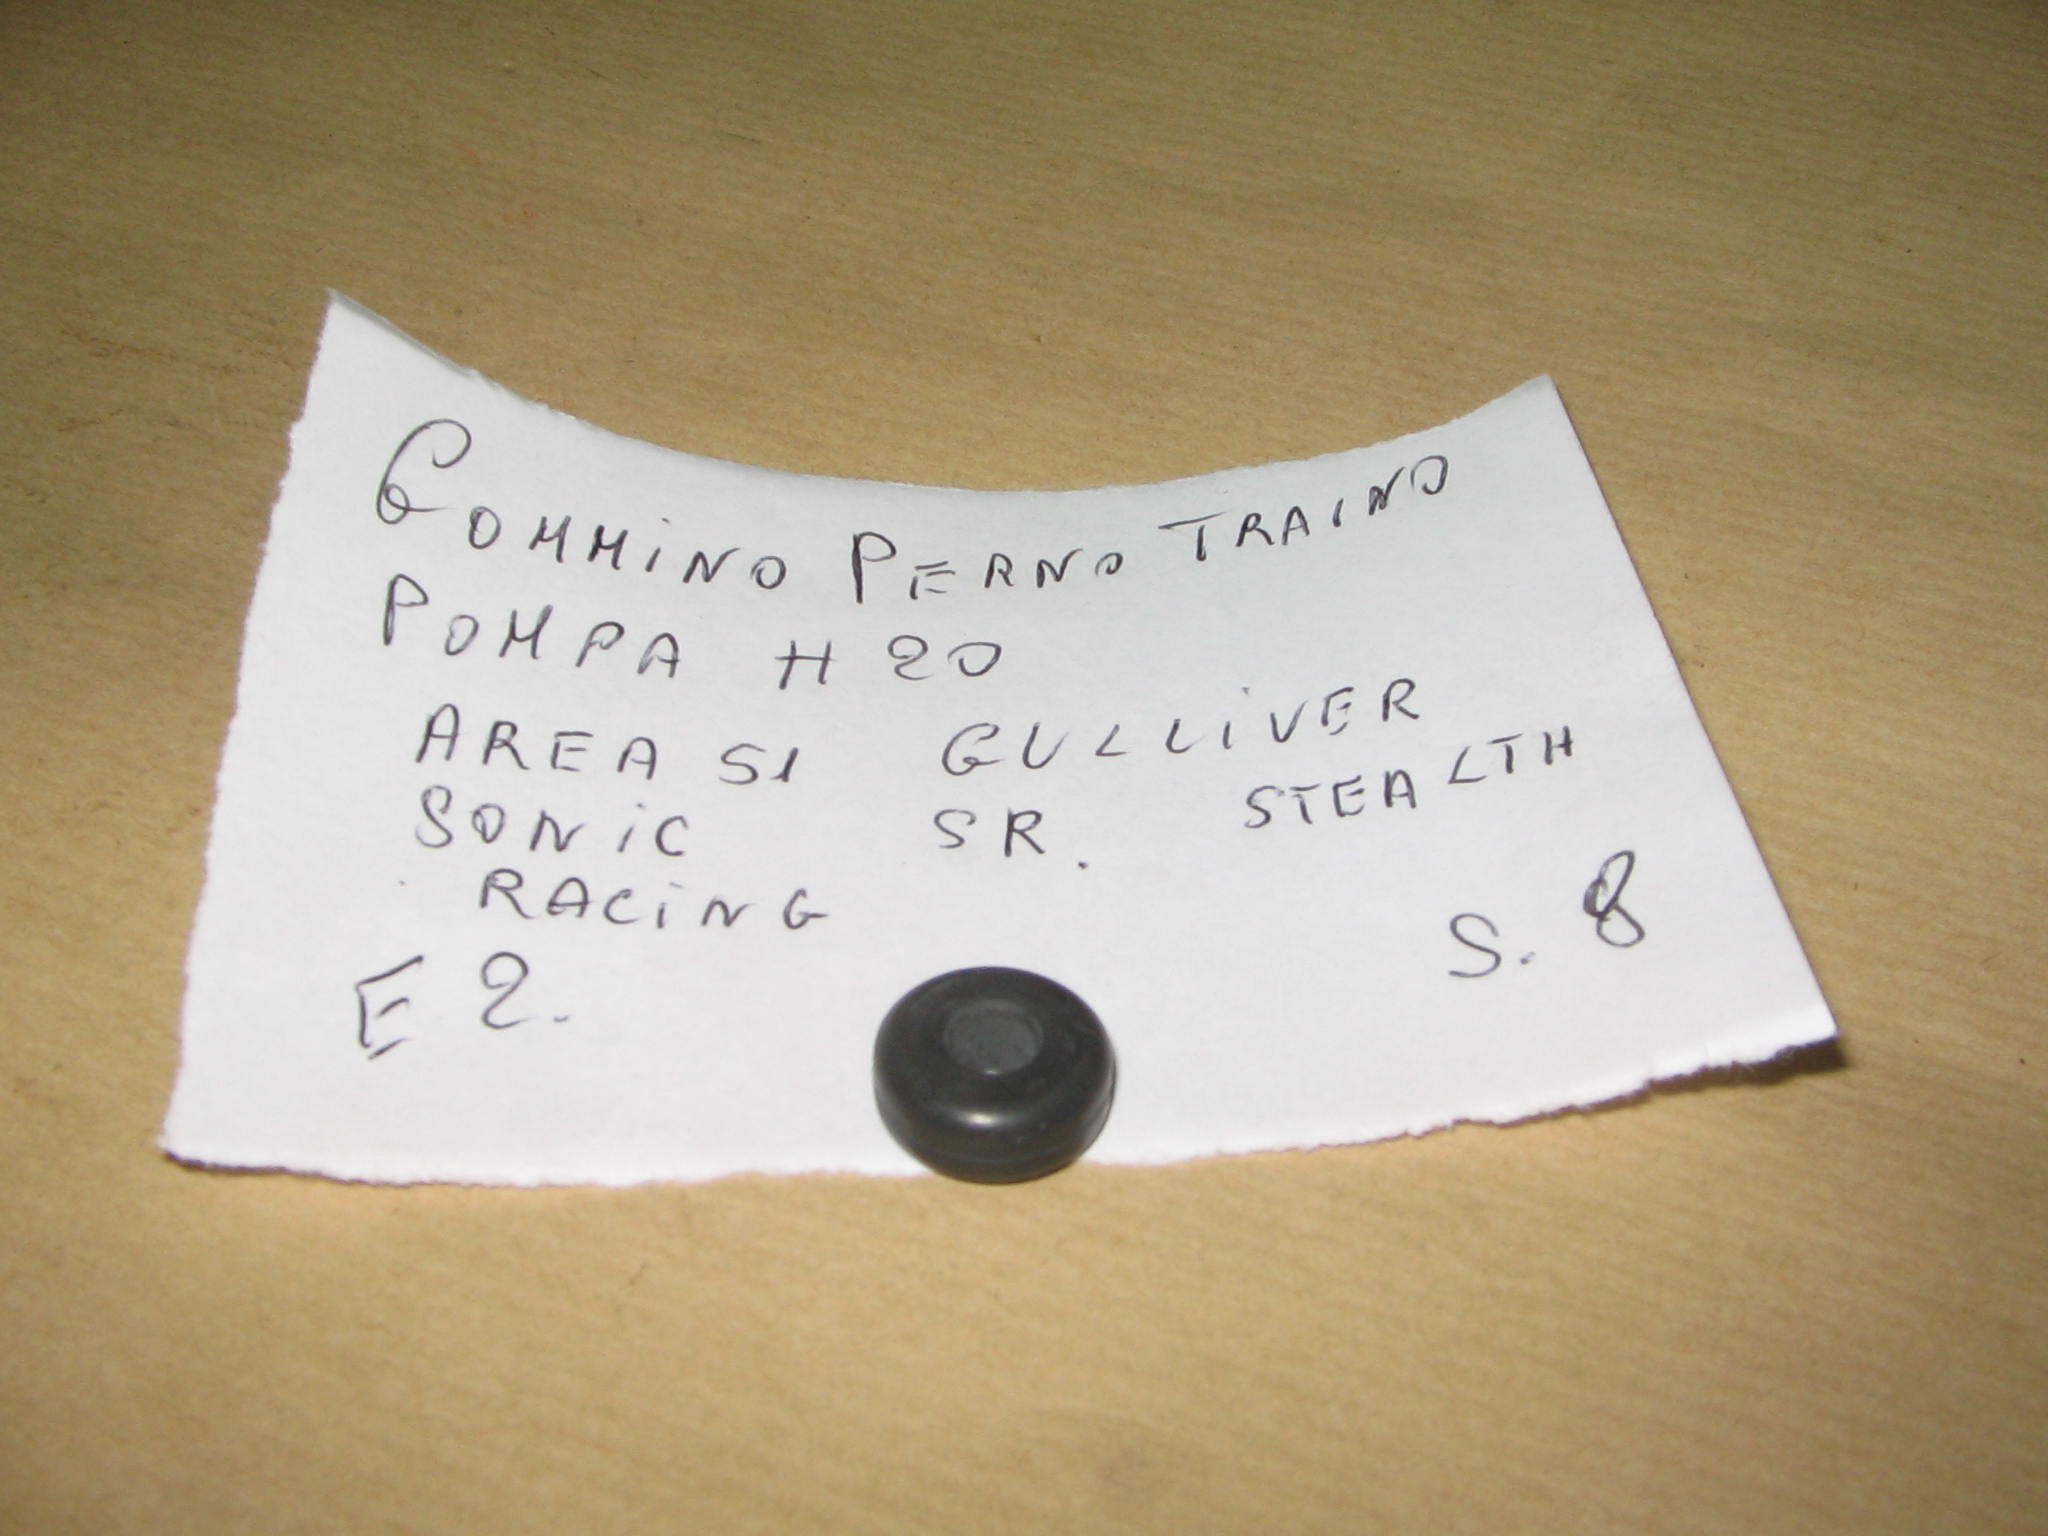 GOMMINO PERNO TRAINO
POMPA H2O
AREA 51 GULLIVER
SONIC SR. STEALTH
RACING
E 2. S. 8